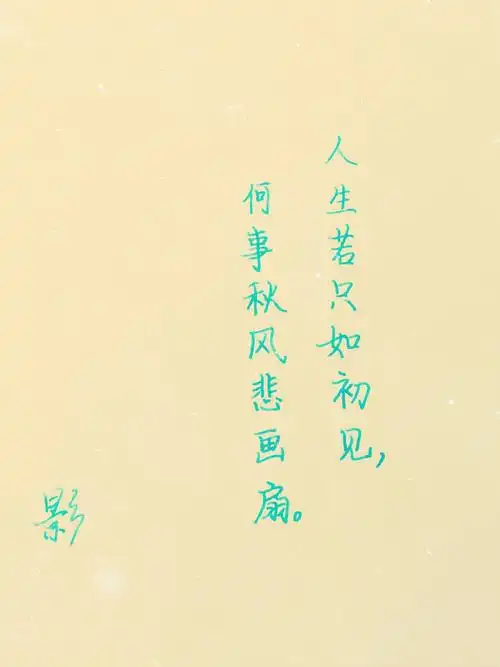 人生若只如初见，
何事秋风悲画扇。
影